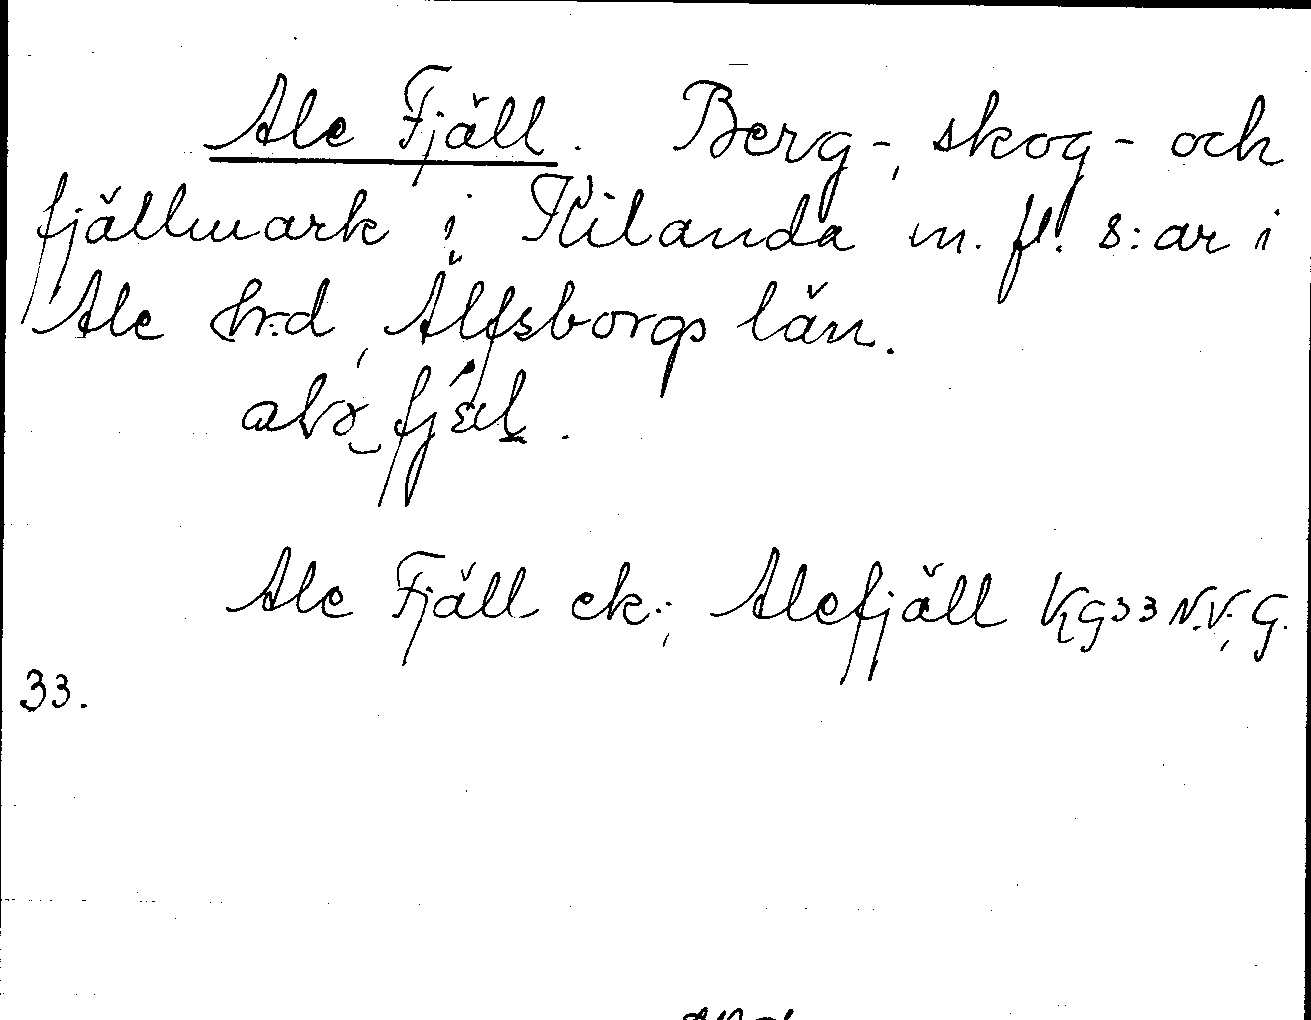 Ale Fjäll. Berg-, skog- och
fjällmark i Kilanda m. fl. s:ar i
Ale hrd, Älfsborgs län.
Ale Fjäll ek.; Alefjäll KG33 N.V.; G.
33.